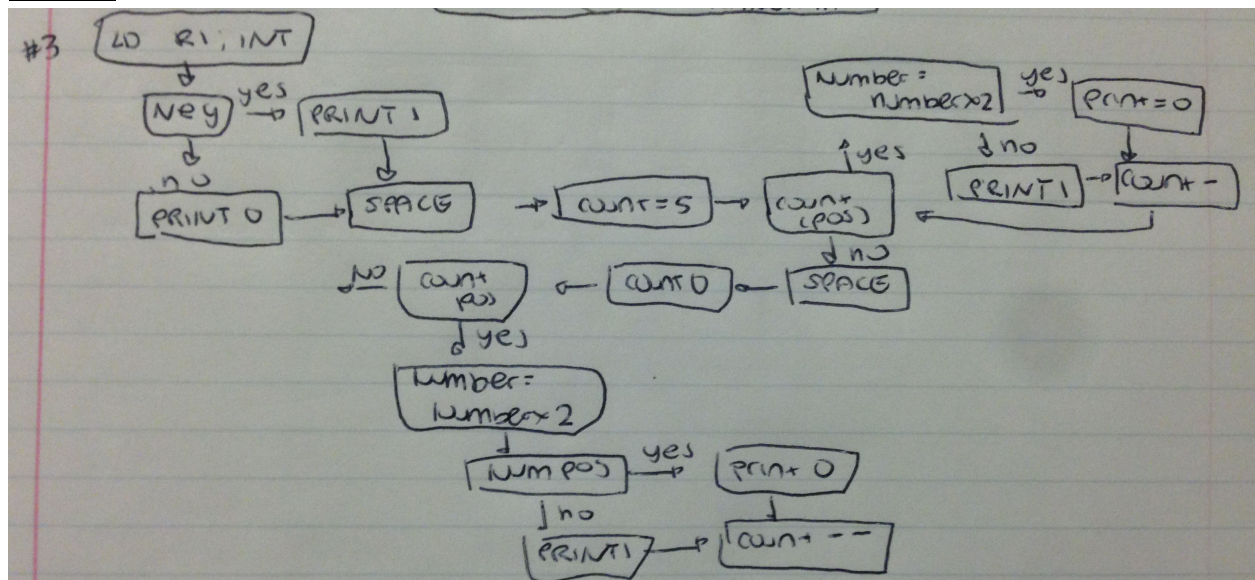 #3 LD R1, INT
Neg yes PRINT 1
no
PRINT 0 SPACE count = 5 count (pos)
yes
Number = number x2 yes print = 0
no
PRINT 1 count -
no
SPACE
COUNT 0
count pos NO
yes
Number = Number x 2
Num pos yes print 0
no
PRINT 1 count --